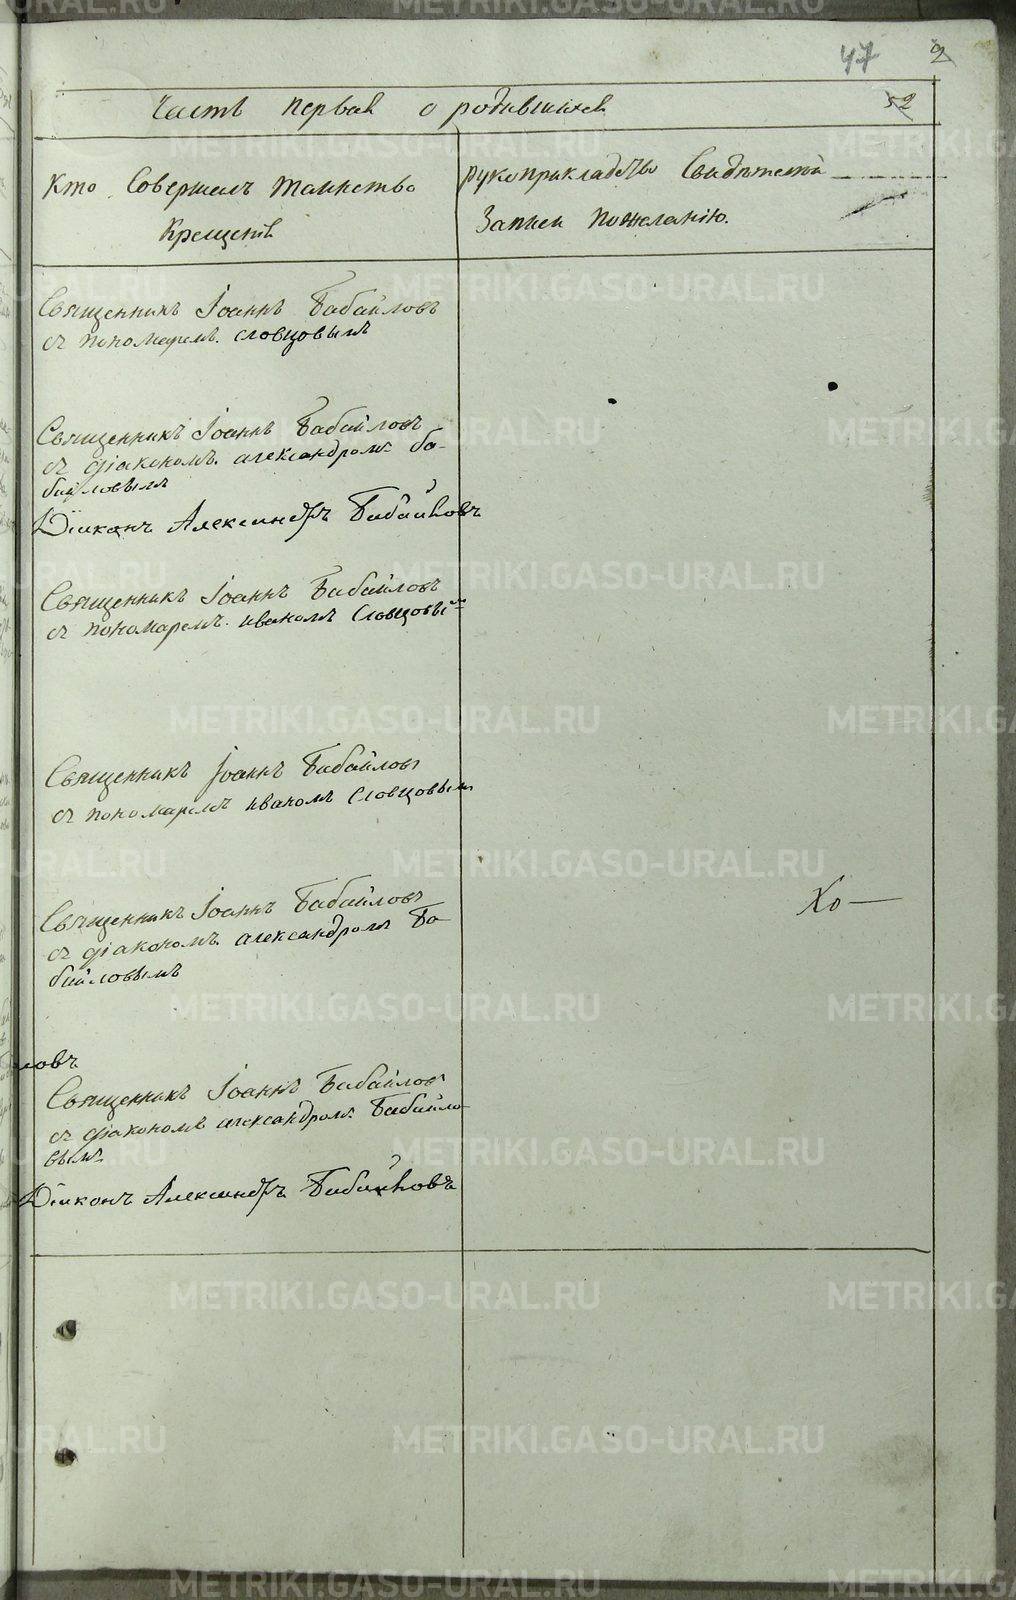 47 2
Часть первая о родившихся 52
Кто Совершалъ таинство
Крещенія
рукоприкладство Свидѣтелей
Записи пожеланію.
Священникъ Іоаннъ Бабайловъ
съ пономаремъ. словцовымъ
Священникъ Іоаннъ Бабайловъ
съ діакономъ. александромъ ба-
байловымъ
Діаконъ Александръ Бабайловъ
Священникъ Іоаннъ Бабайловъ
съ пономаремъ. иваномъ Словцовымъ
Священникъ Іоаннъ Бабайловъ
съ пономаремъ иваномъ Словцовымъ
Священникъ Іоаннъ Бабайловъ
съ діакономъ. александромъ Ба-
байловымъ
Хо—
ловъ
Священникъ Іоаннъ Бабайловъ
съ діакономъ александромъ Бабайло-
вымъ
Діаконъ Александръ Бабайловъ
METRIKI.GASO-URAL.RU